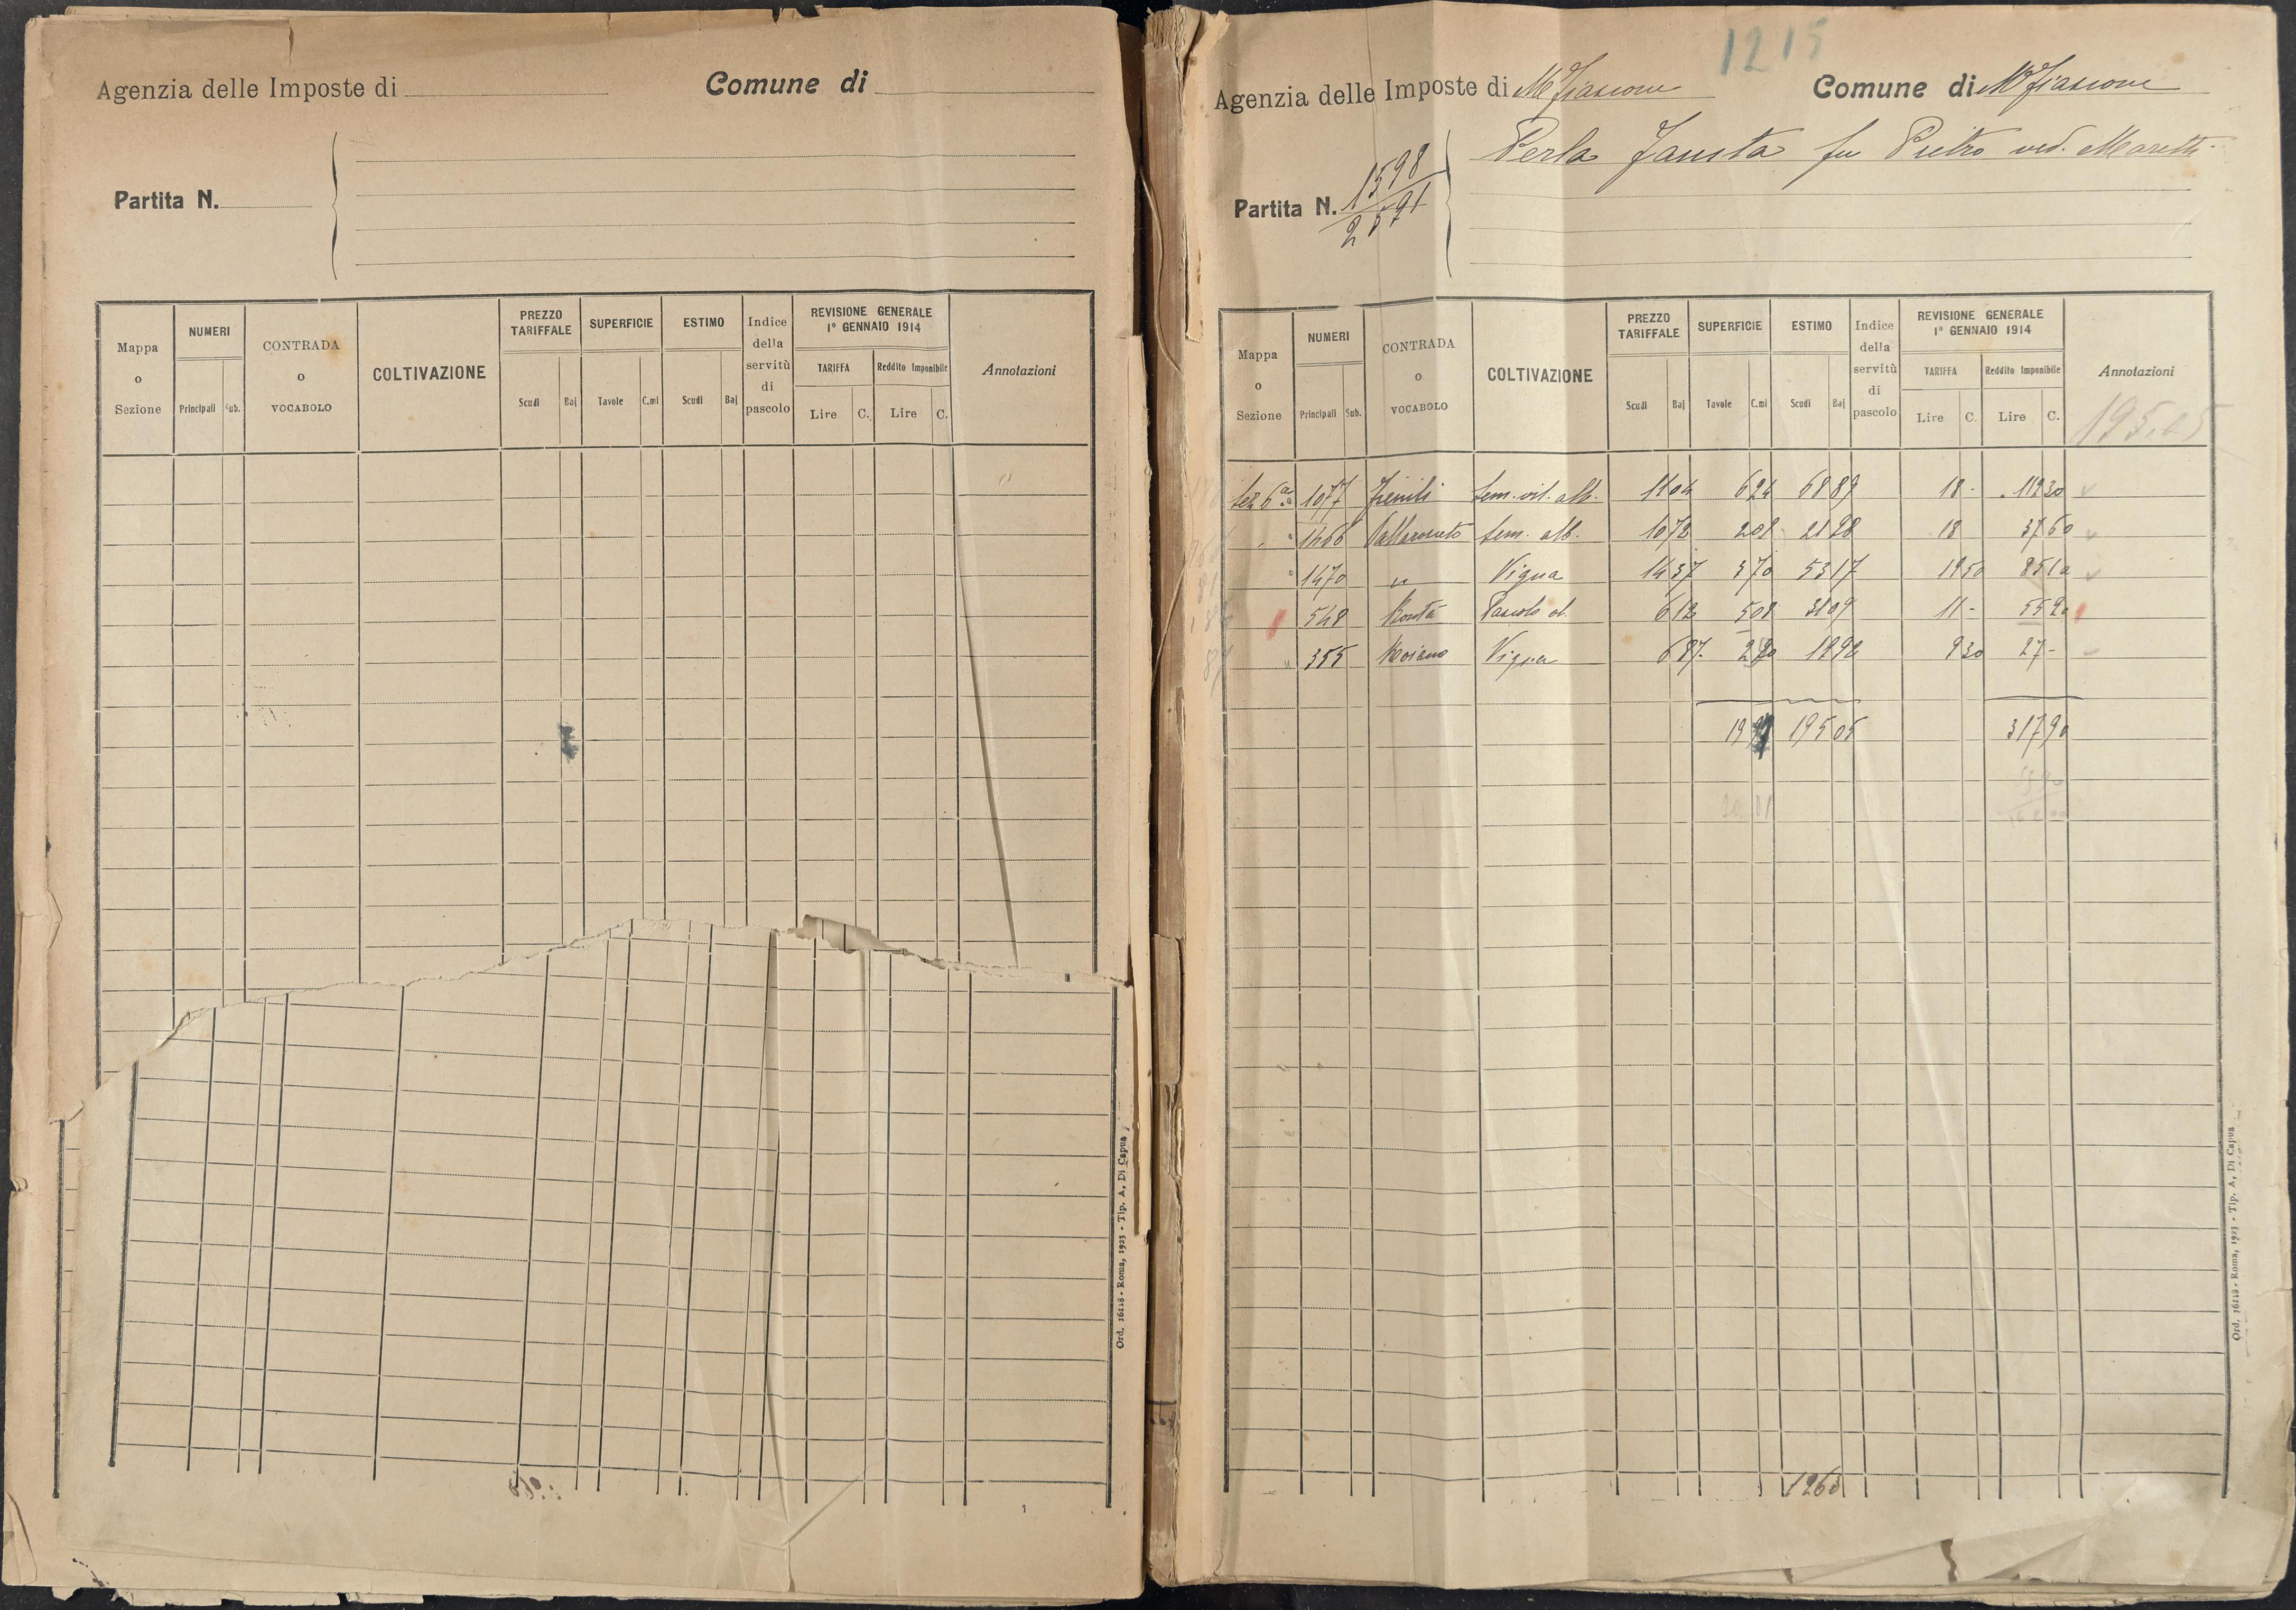 Agenzia delle Imposte di
Comune di
Partita N.
Mappa o Sezione
NUMERI
Principali Sub.
CONTRADA o VOCABOLO
COLTIVAZIONE
PREZZO TARIFFALE
Scudi Baj
SUPERFICIE
Tavole C.mi
ESTIMO
Scudi Baj
Indice della servitù di pascolo
REVISIONE GENERALE
1° GENNAIO 1914
TARIFFA
Lire C.
Reddito Imponibile
Lire C.
Annotazioni
Ord. 16118 - Roma, 1923 - Tip. A. Di Capua
1215
Agenzia delle Imposte di Mfiascone
Comune di Mfiascone
Perla Fausta fu Pietro ved. Moretti
Partita N. 1598
2591
Mappa o Sezione
NUMERI
Principali Sub.
CONTRADA o VOCABOLO
COLTIVAZIONE
PREZZO TARIFFALE
Scudi Baj
SUPERFICIE
Tavole C.mi
ESTIMO
Scudi Baj
Indice della servitù di pascolo
REVISIONE GENERALE
1° GENNAIO 1914
TARIFFA
Lire C.
Reddito Imponibile
Lire C.
Annotazioni
195.05
Sez 6a 1077 Fienili Sem. vit. alb. 1104 624 6889 18 - 11230
1466 Sem. alb. 1078 208 18 3760
1470 " Vigna 1437 370 5317 1950 8510
548 Pascolo ol. 612 508 3109 11 - 5590
355 Vigna 687 290 1992 930 27 -
19505 31790
1263
Ord. 16118 - Roma, 1923 - Tip. A. Di Capua